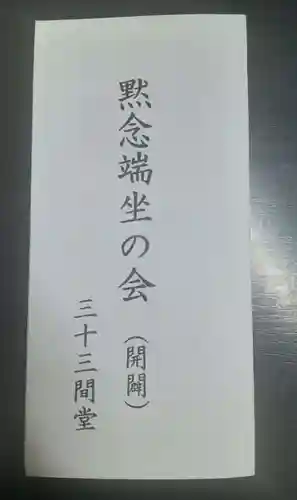 黙念端坐の会（開闢）
三十三間堂